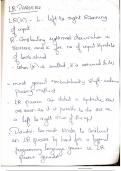 LR PARSERS
LR(k) - L - left to right scanning
of input
R - Constructing rightmost derivation in
reverse and k for no. of input symbols
of look ahead
when (k) is omitted, k is assumed to be 1
- most general nonbacktracking shift-reduce
parsing method
- LR parser can detect a syntactic error
as soon as it is possible to do so
a left to right scan of the input
- Drawback: too much work to construct
an LR parser by hand for a typical
programming language grammar.